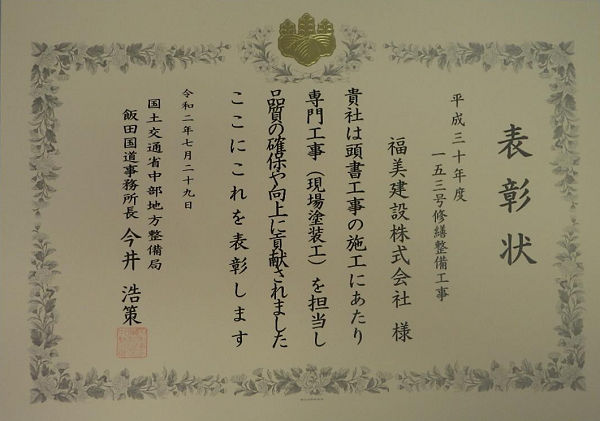 表彰状
平成三十年度
一五三号修繕整備工事
福美建設株式会社 様
貴社は頭書工事の施工にあたり
専門工事（現場塗装工）を担当し
品質の確保や向上に貢献されました
ここにこれを表彰します
令和二年七月二十九日
国土交通省中部地方整備局
飯田国道事務所長 今井 浩策